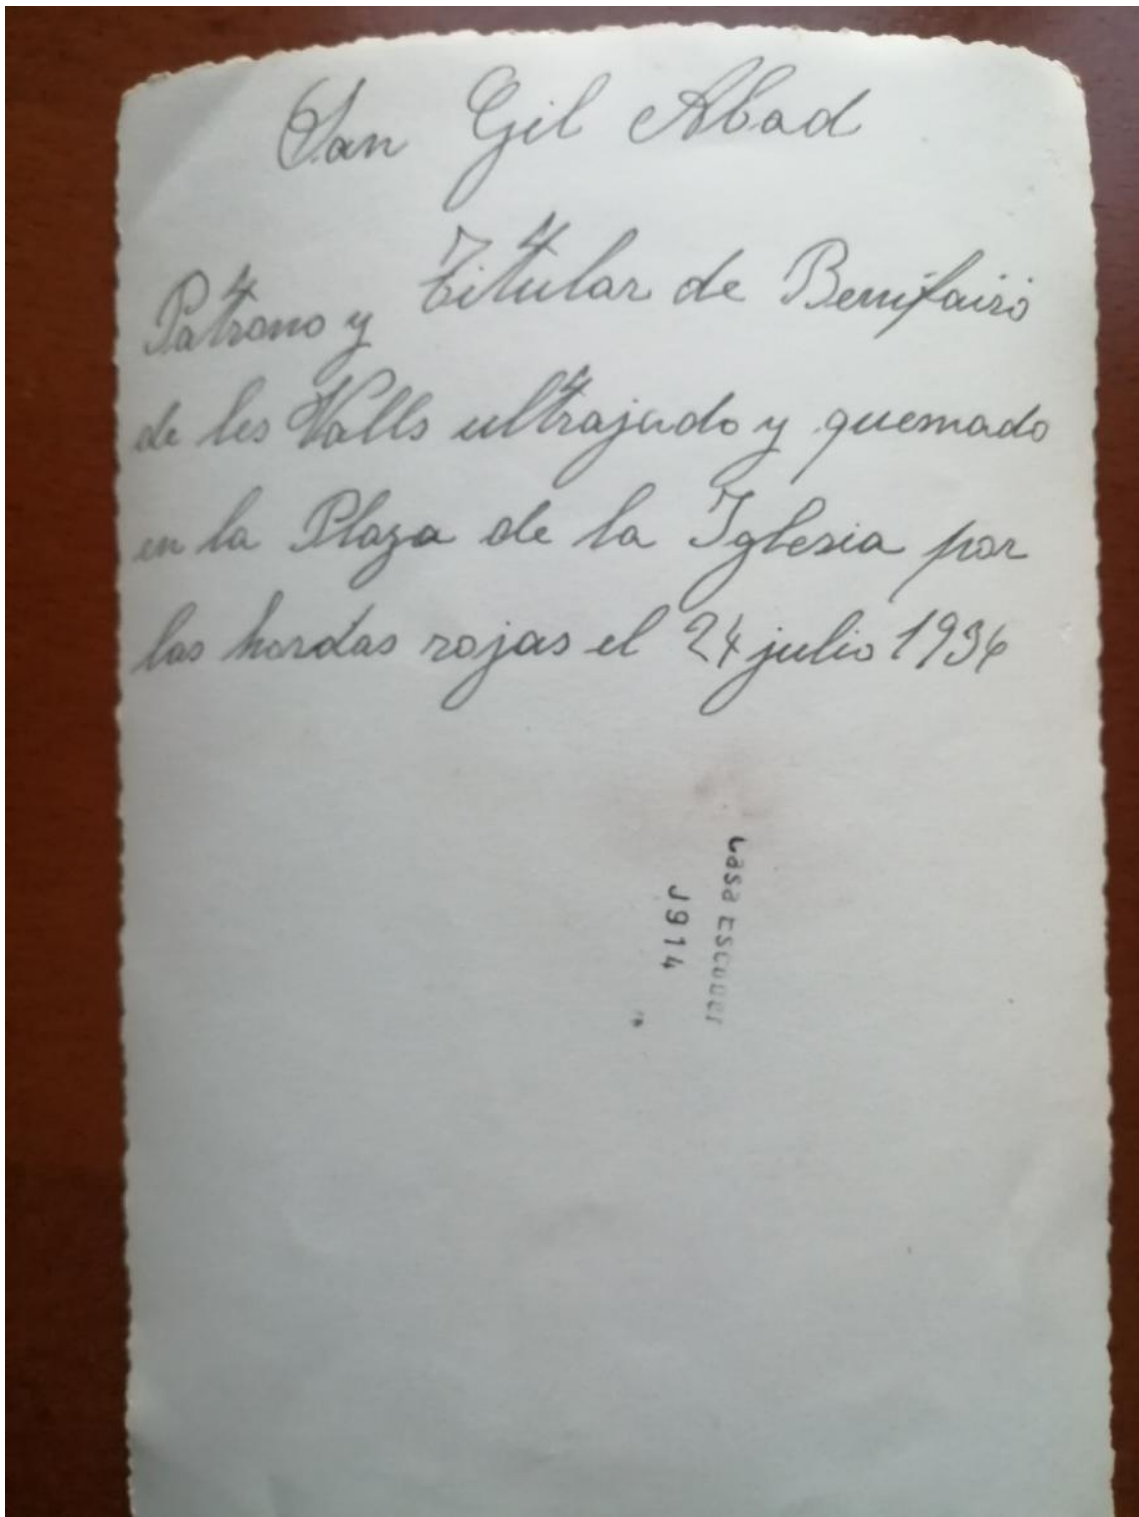 San Gil Abad
Patrono y Titular de Benifairó
de les Valls ultrajado y quemado
en la Plaza de la Iglesia por
las hordas rojas el 24 julio 1936
Casa Escuder
J914